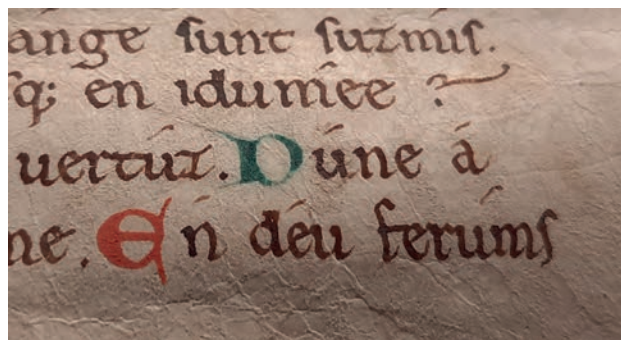 ange ſunt ſuzmiſ.
ſq; en idumee ?
uertúz. Dúne á
ne. En déu ferúmſ